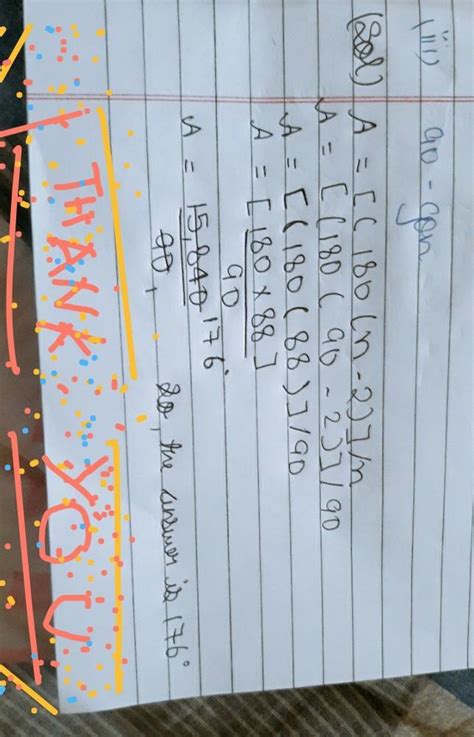 (iii) 90 - gon
(Sol) A = [(180(n-2)]/n
A = [(180(90-2)]/90
A = [(180(88)]/90
A = [180×88]
90
A = 15,840 176°
90
so, the answer is 176°
THANK YOU